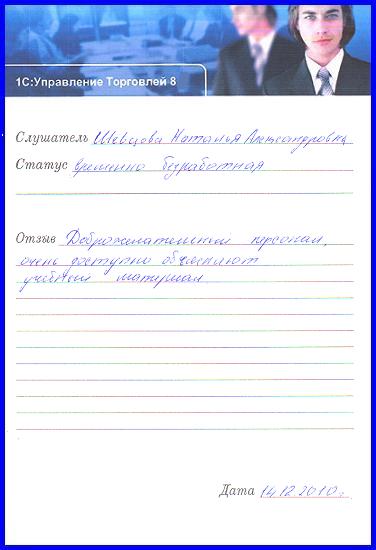 1С:Управление Торговлей 8
Слушатель Шевцова Наталья Александровна
Статус временно безработная
Отзыв Доброжелательный персонал,
очень доступно объясняют
учебный материал
Дата 14.12.2010г.